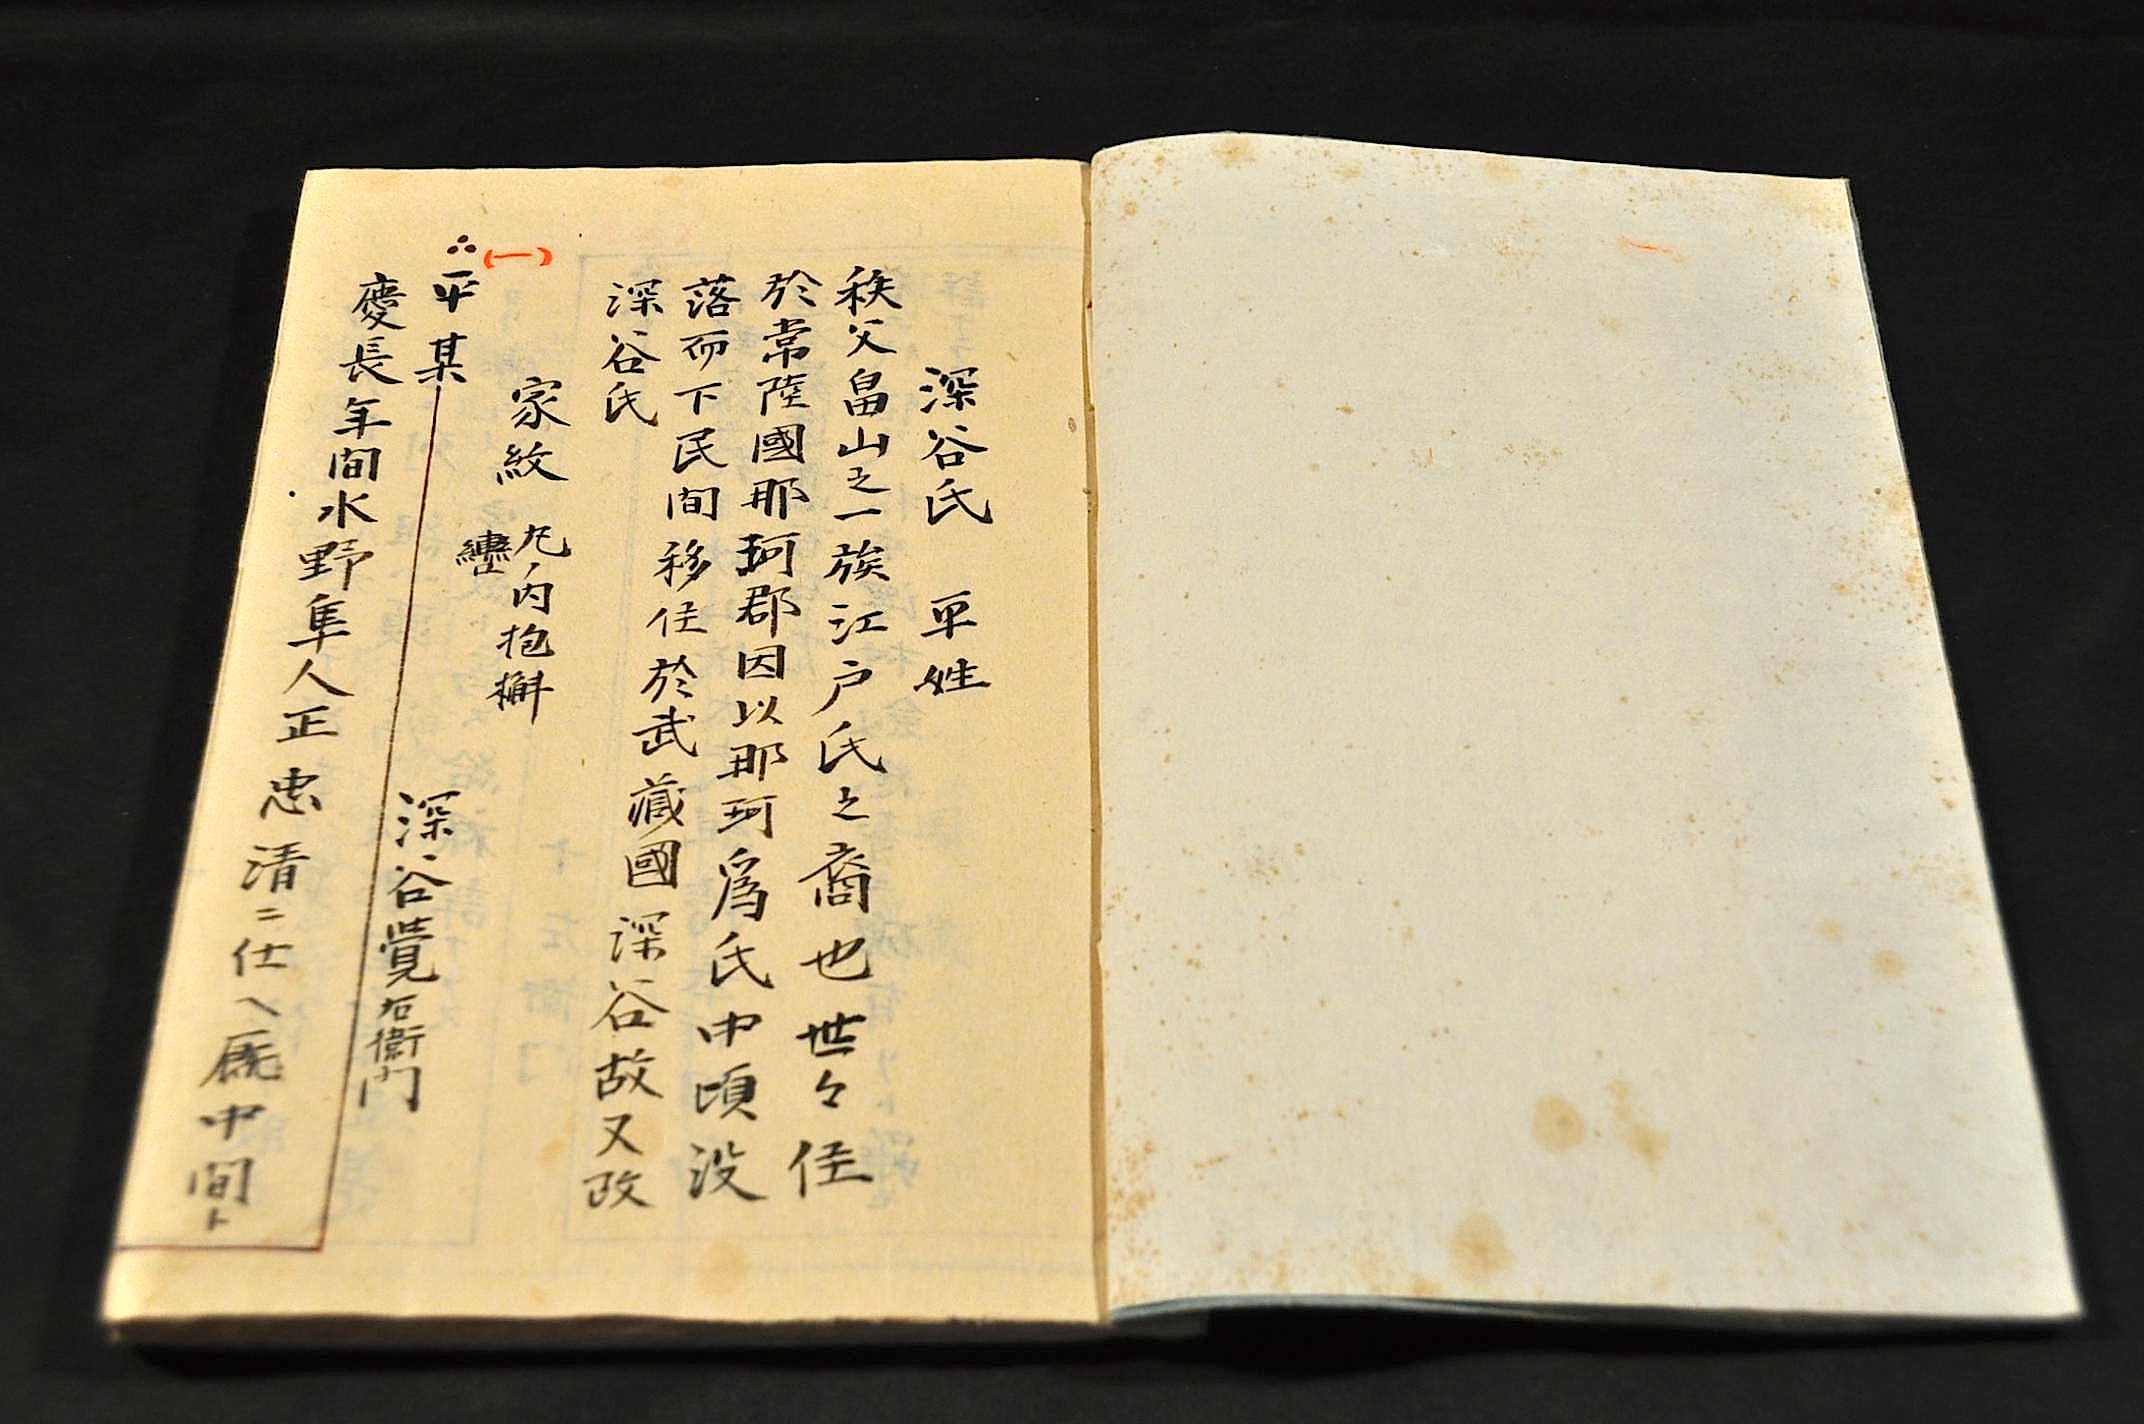 深谷氏　平姓
秩父畠山之一族江戸氏之裔也世々住
於常陸國那珂郡因以那珂爲氏中頃没
落而下民間移住於武藏國深谷故又改
深谷氏
家紋　丸ノ内抱檞
轡
(一)
平某　深谷覺右衛門
慶長年間水野隼人正忠清ニ仕ヘ厩中間ト